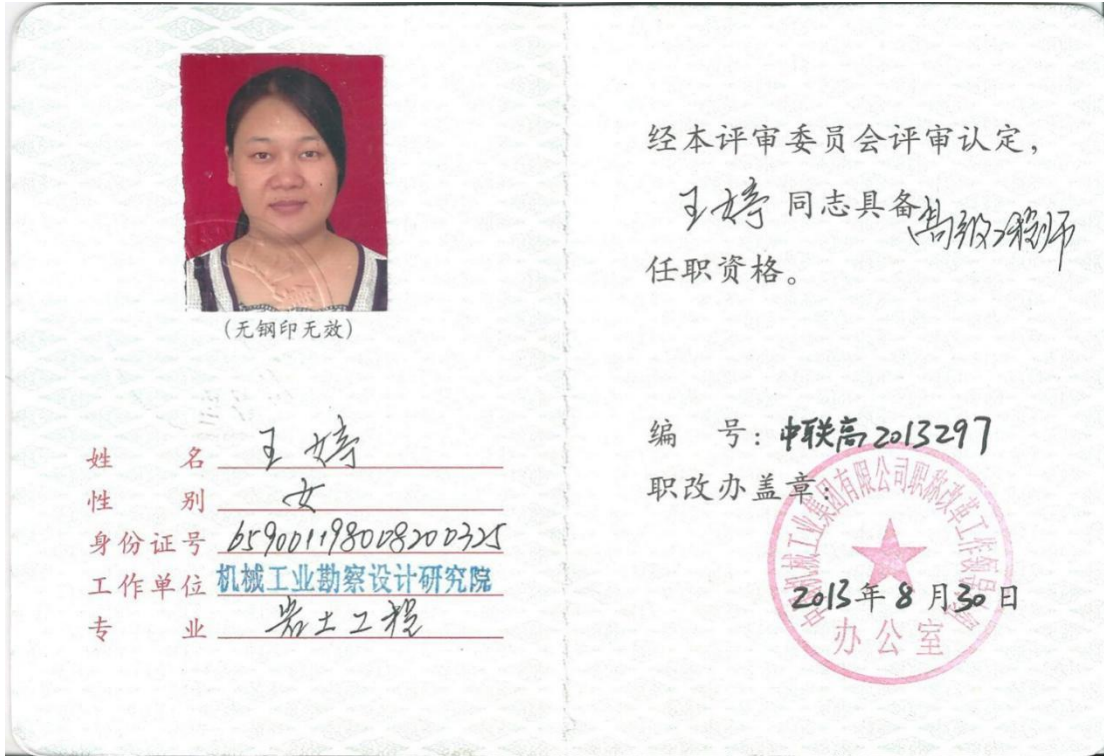 (无钢印无效)
姓 名 王婷
性 别 女
身份证号 659001198008200325
工作单位 机械工业勘察设计研究院
专 业 岩土工程
经本评审委员会评审认定，
王婷 同志具备 高级工程师
任职资格。
编 号：中联高2013297
职改办盖章：
机械工业集团有限公司职称改革工作领导
2013年8月30日
办公室